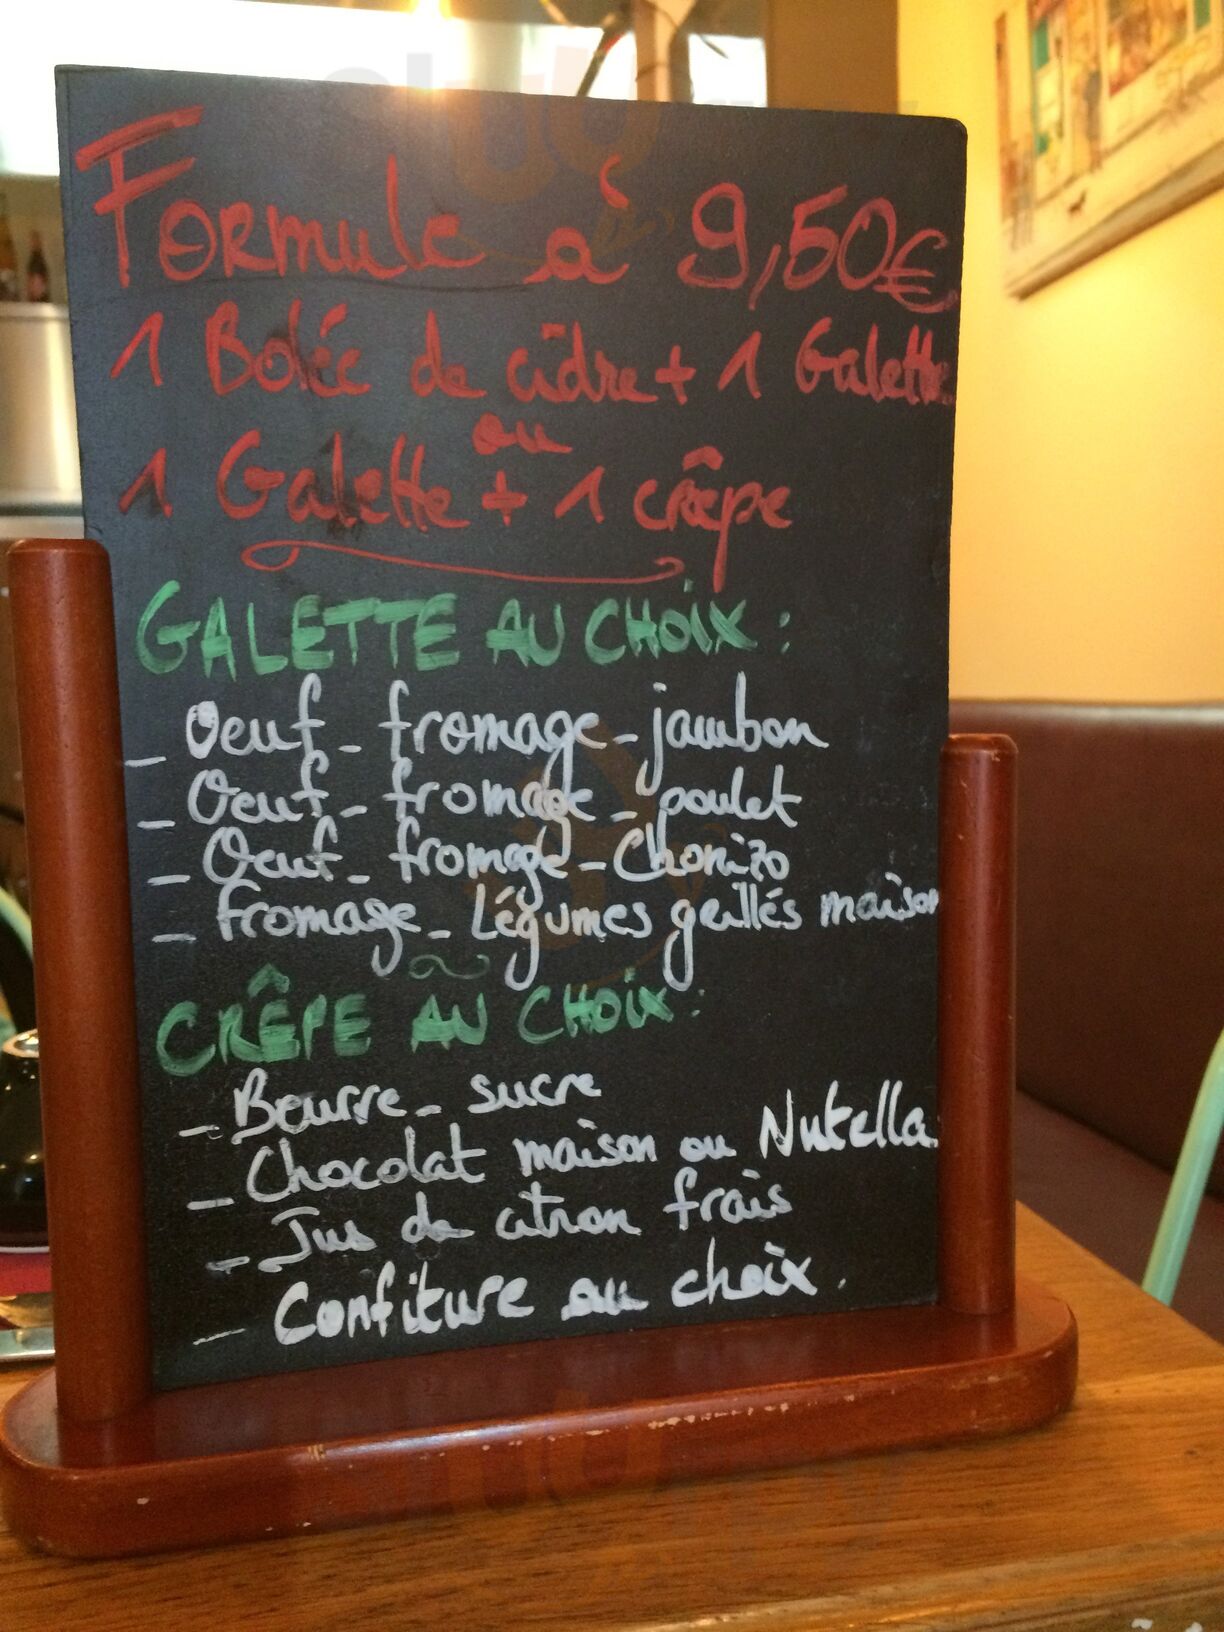 Formule à 9,50€
1 Bolée de cidre + 1 Galette
ou
1 Galette + 1 crêpe
GALETTE AU CHOIX :
_ Oeuf - fromage - jambon
_ Oeuf - fromage - poulet
_ Oeuf - fromage - Chorizo
_ fromage - Légumes grillés maison
CRÊPE AU CHOIX :
_ Beurre - sucre
_ Chocolat maison ou Nutella
_ Jus de citron frais
_ Confiture au choix.